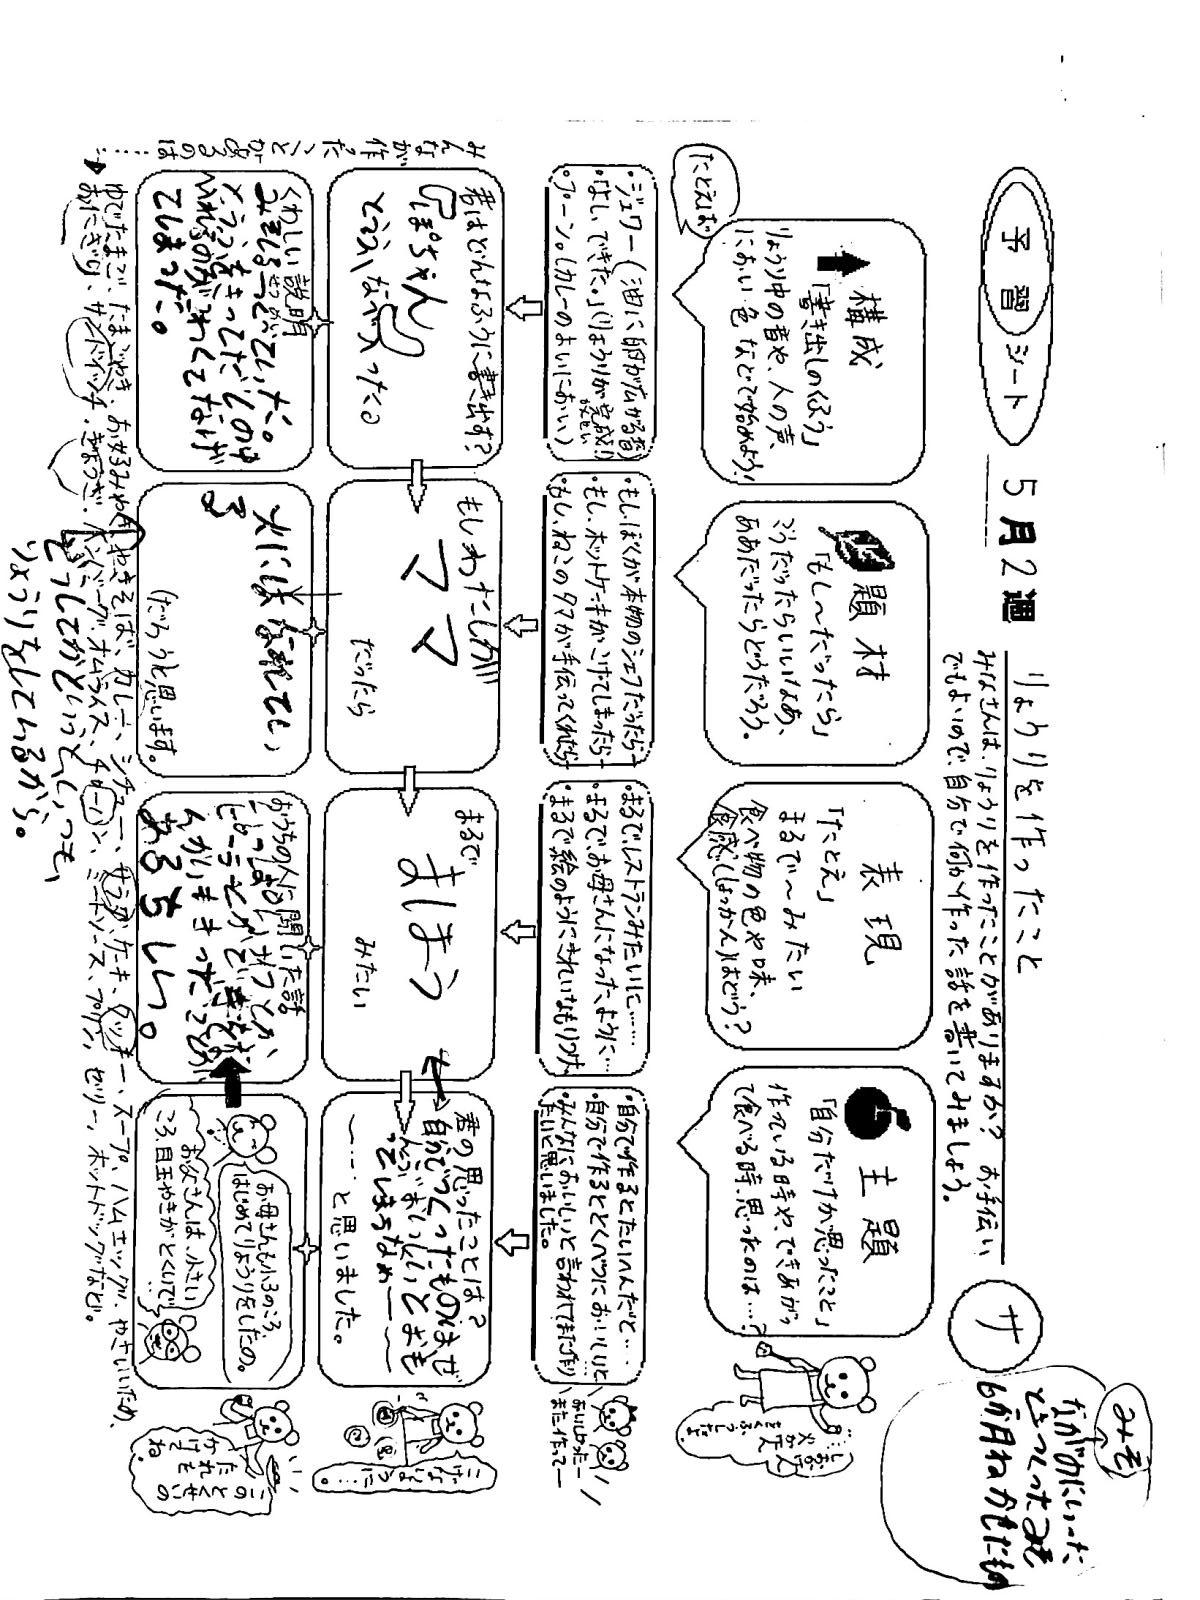 予習シート
5月2週
りょうりを作ったこと
みなさんは、りょうりを作ったことがありますか? お手伝い
でもよいので、自分で何か作った話を書いてみましょう。
サ
みそ
ながのにいった
ときつくったみそ
6か月ねかせたもの
構成
「書き出しのくふう」
りょうり中の音や、人の声、
におい、色などで始めよう!
題材
「もし〜だったら」
こうだったらいいなあ、
ああだったらどうだろう。
表現
「たとえ」
まるで〜みたい
食べ物の色や味、
食感(しょっかん)はどう?
主題
「自分だけが思ったこと」
作っている時や、できあがっ
て食べる時、思ったのは…?
たとえば
・ジュワー(油に卵が広がる音)
・「はい、できた。」(りょうりが完成!)
・プーン。(カレーのよいにおい)
・もしぼくが本物のシェフだったら…
・もし、ホットケーキがこげてしまったら…
・もし、ねこのタマが手伝ってくれたら…
・まるでレストランみたいに……
・まるでお母さんになったように…
・まるで絵のようにきれいなもりつけ
・自分で作るとたいへんだと…
・自分で作るととくべつにおいしいと
・みんなにおいしいと言われてまた作り
たいと思いました。
おいしかったー
また作ってー
君はどんなふうに書き出す?
「ぽちゃん」
とうふがなべに入った。
もしわたしが
ママ
だったら
まるで
まほう
みたい
君の思ったことは?
自分でつくったものはぜ
んぶおいしいとおも
ってしまうなぁ〜
〜…と思いました。
くわしい説明
火にはなれてい
る
(だろう)と思います。
おうちの人に聞いた話
あるらしい。
お母さんも小3のころ、
はじめてりょうりをしたの。
お父さんは、小さい
ころ、目玉やきがとくいで…
みんなが作ったことがあるのは……
ゆでたまご、たまごやき、お好みやき、やきそば、カレー、シチュー、サラダ、ケーキ、クッキー、スープ、ハムエッグ、やさいいため、
おにぎり、サンドイッチ、ぎょうざ、ハンバーグ、オムライス、チャーハン、ミートソース、プリン、ゼリー、ホットドッグなど。
どうしてかというといつも、
りょうりをしているから。